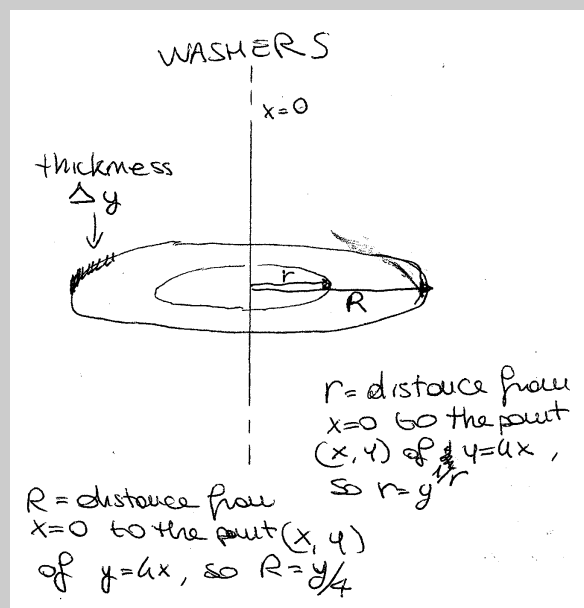 WASHERS
x=0
thickness
Δy
r
R
r = distance from
x=0 to the point
(x, y) of y=4x,
so r=y
R = distance from
x=0 to the point (x, y)
of y=4x, so R=y/4